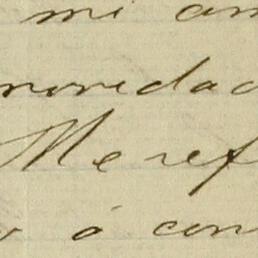 mi am
novedad
Me ref
ó con